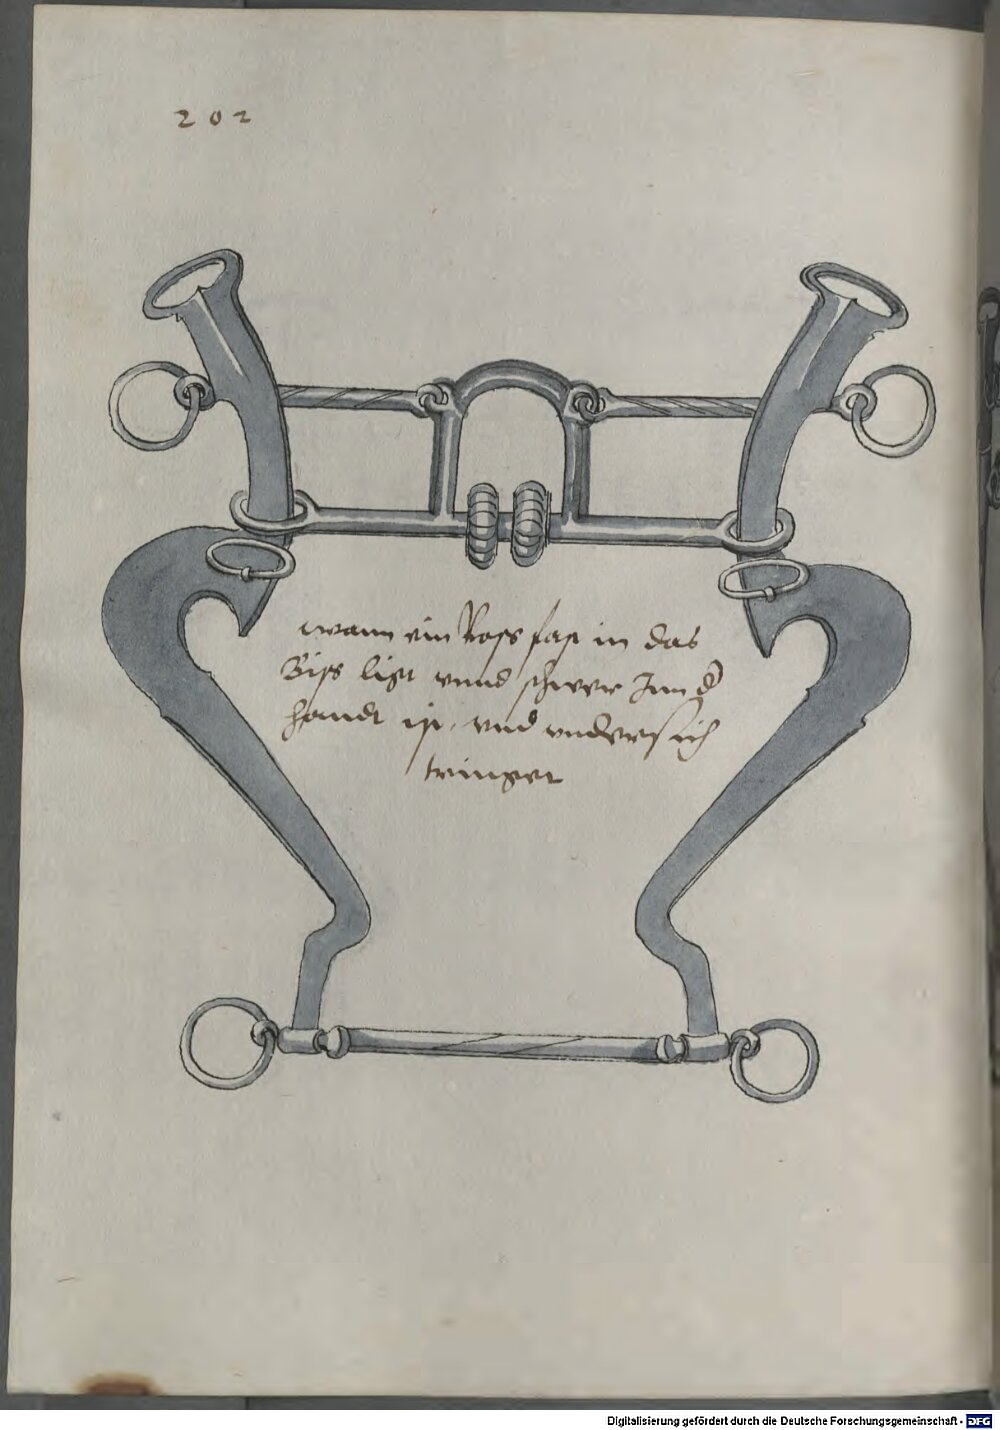 202
wann ein Ross fast in das
Biss ligt unnd schwer Inn d
handt ist, und undersich
tringet
Digitalisierung gefördert durch die Deutsche Forschungsgemeinschaft - DFG